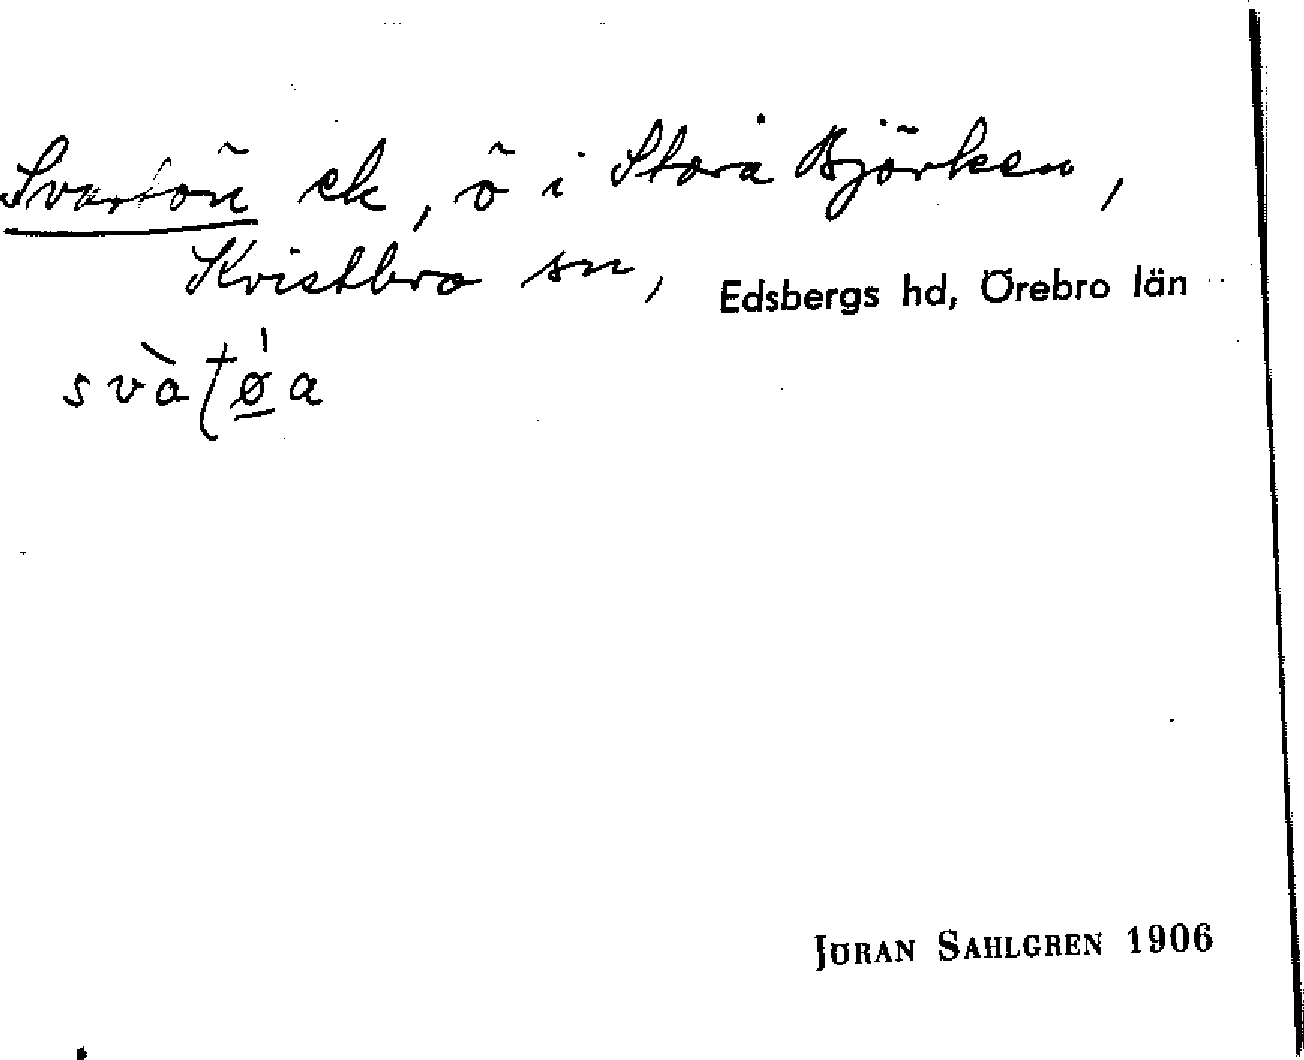 Svartön ek, ö i Stora Björken,
Kvistbro sn, Edsbergs hd, Örebro län
JÖRAN SAHLGREN 1906